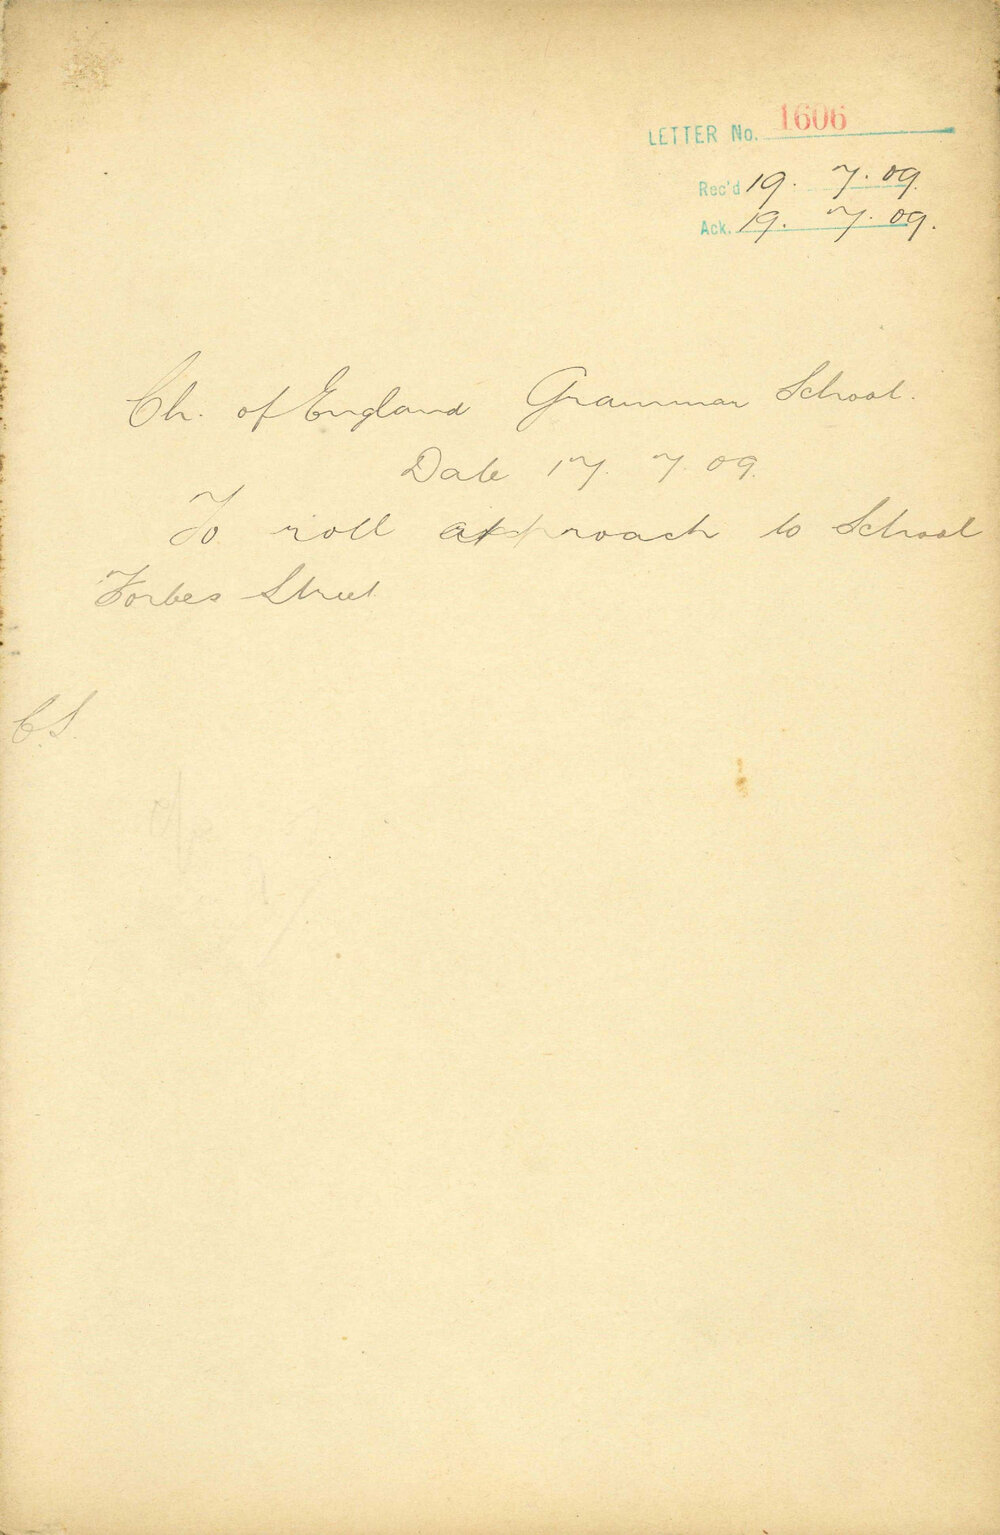 LETTER No. 1606
Rec'd 19. 7. 09.
Ack. 19. 7. 09.
Ch. of England Grammar School.
Date 17. 7. 09.
To roll approach to School
Forbes Street
C.S.